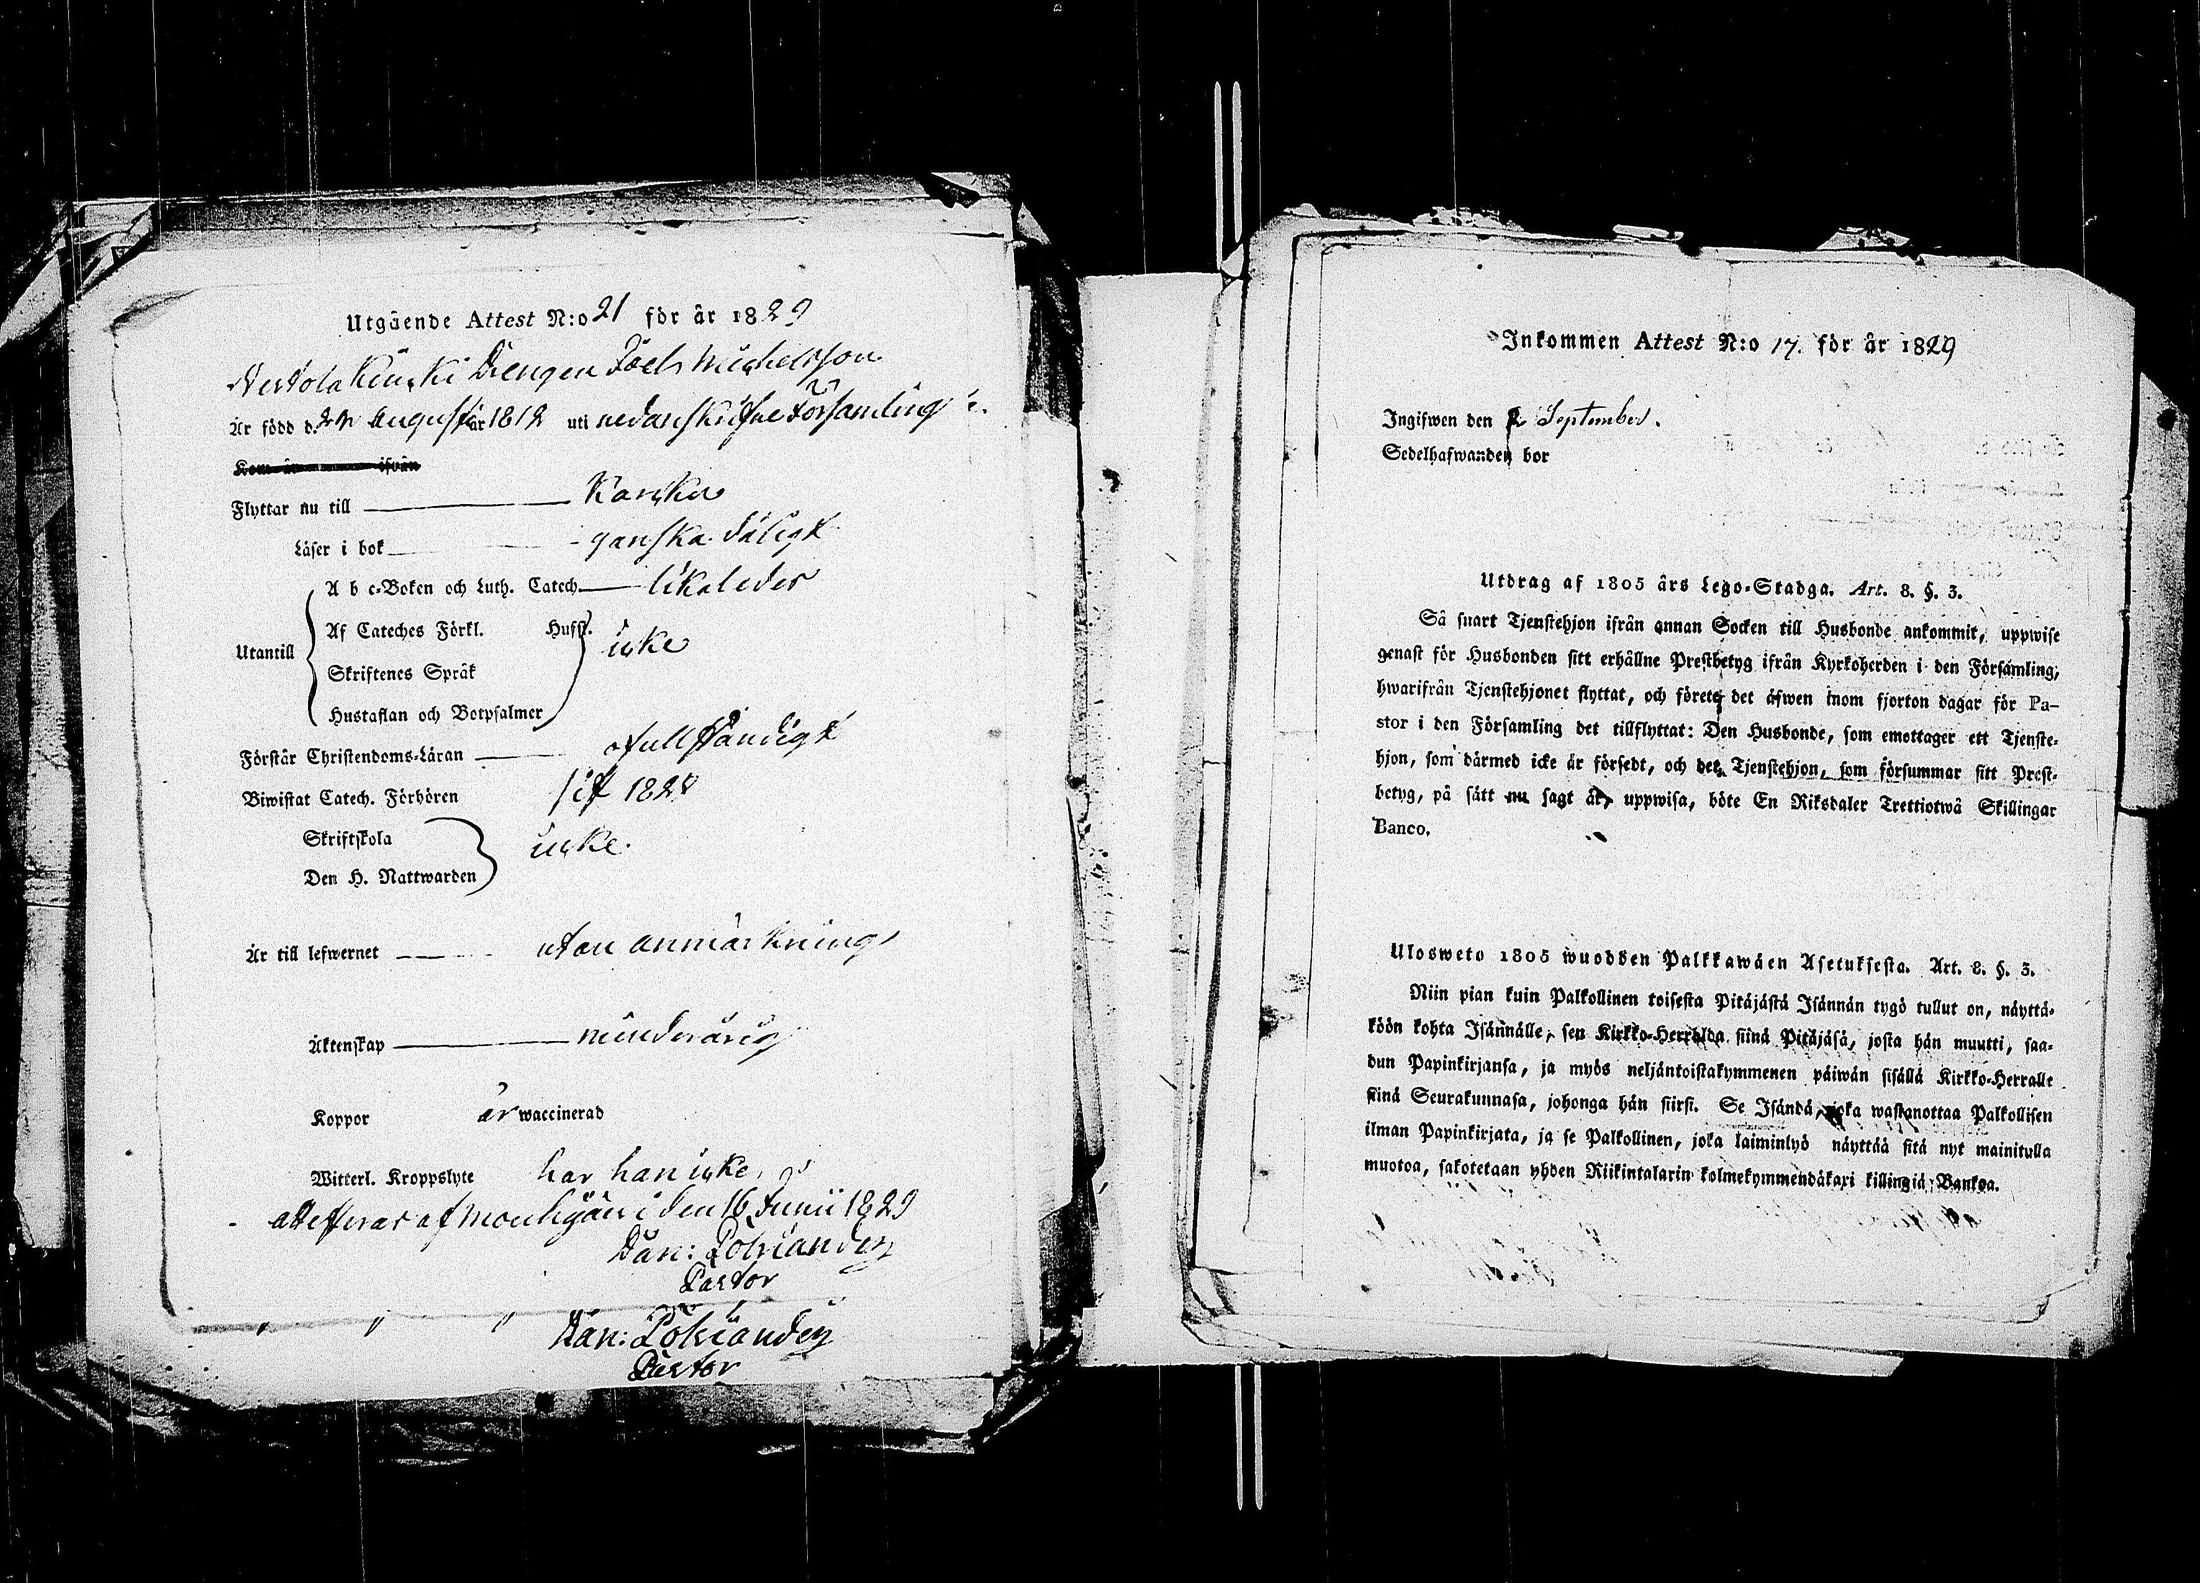 Utgående Attest N:o 21 för år 1829
Kuiski Drengen Joel Michelsson
Är född d. 24 Augusti år 1812 uti nedanskrifne Församling
Kom år ifrån
Flyttar nu till Karisku
Läser i bok ganska dåligt
A b c-Boken och Luth. Catech. likaledes
Af Cateches Förkl. Husf.
Utantill icke
Skriftenes Språk
Hustaflan och Botpsalmer
Förstår Christendoms-Läran ofullständigt
Biwistat Catech. Förhören sist 1828
Skriftskola icke.
Den H. Nattwarden
Är till lefwernet utan anmärkning
Äktenskap minderårig
Koppor är waccinerad
Witterl. Kroppslyte har han icke,
attesteras af Mouhijärwi den 16 Junii 1829
Dan: Polviander
Pastor
" " " Dan: Polviander
Pastor
Inkommen Attest N:o 17. för år 1829
Ingifwen den September.
Sedelhafwanden bor
Utdrag af 1805 års Lego-Stadga. Art. 8. §. 3.
Så snart Tjenstehjon ifrån annan Socken till Husbonde ankommit, uppwise
genast för Husbonden sitt erhållne Prestbetyg ifrån Kyrkoherden i den Församling,
hwarifrån Tjenstehjonet flyttat, och förete det äfwen inom fjorton dagar för Pa-
stor i den Församling det tillflyttat: Den Husbonde, som emottager ett Tjenste-
hjon, som därmed icke är försedt, och det Tjenstehjon, som försummar sitt Prest-
betyg, på sätt nu sagt är, uppwisa, böte En Riksdaler Trettiotwå Skillingar
Banco.
Ulosweto 1805 wuodden Palkkawäen Asetuksesta. Art. 8. §. 3.
Niin pian kuin Palkollinen toisesta Pitäjästä Isännän tygö tullut on, näyttä-
köön kohta Isännälle, sen Kirkko-Herralda siinä Pitäjäsä, josta hän muutti, saa-
dun Papinkirjansa, ja myös neljäntoistakymmenen päiwän sisällä Kirkko-Herralle
siinä Seurakunnasa, johonga hän siirsi. Se Isändä, joka wastanottaa Palkollisen
ilman Papinkirjata, ja se Palkollinen, joka laiminlyö näyttää sitä nyt mainitulla
muotoa, sakotetaan yhden Riikintalarin kolmekymmendäkaxi killingiä Bankoa.